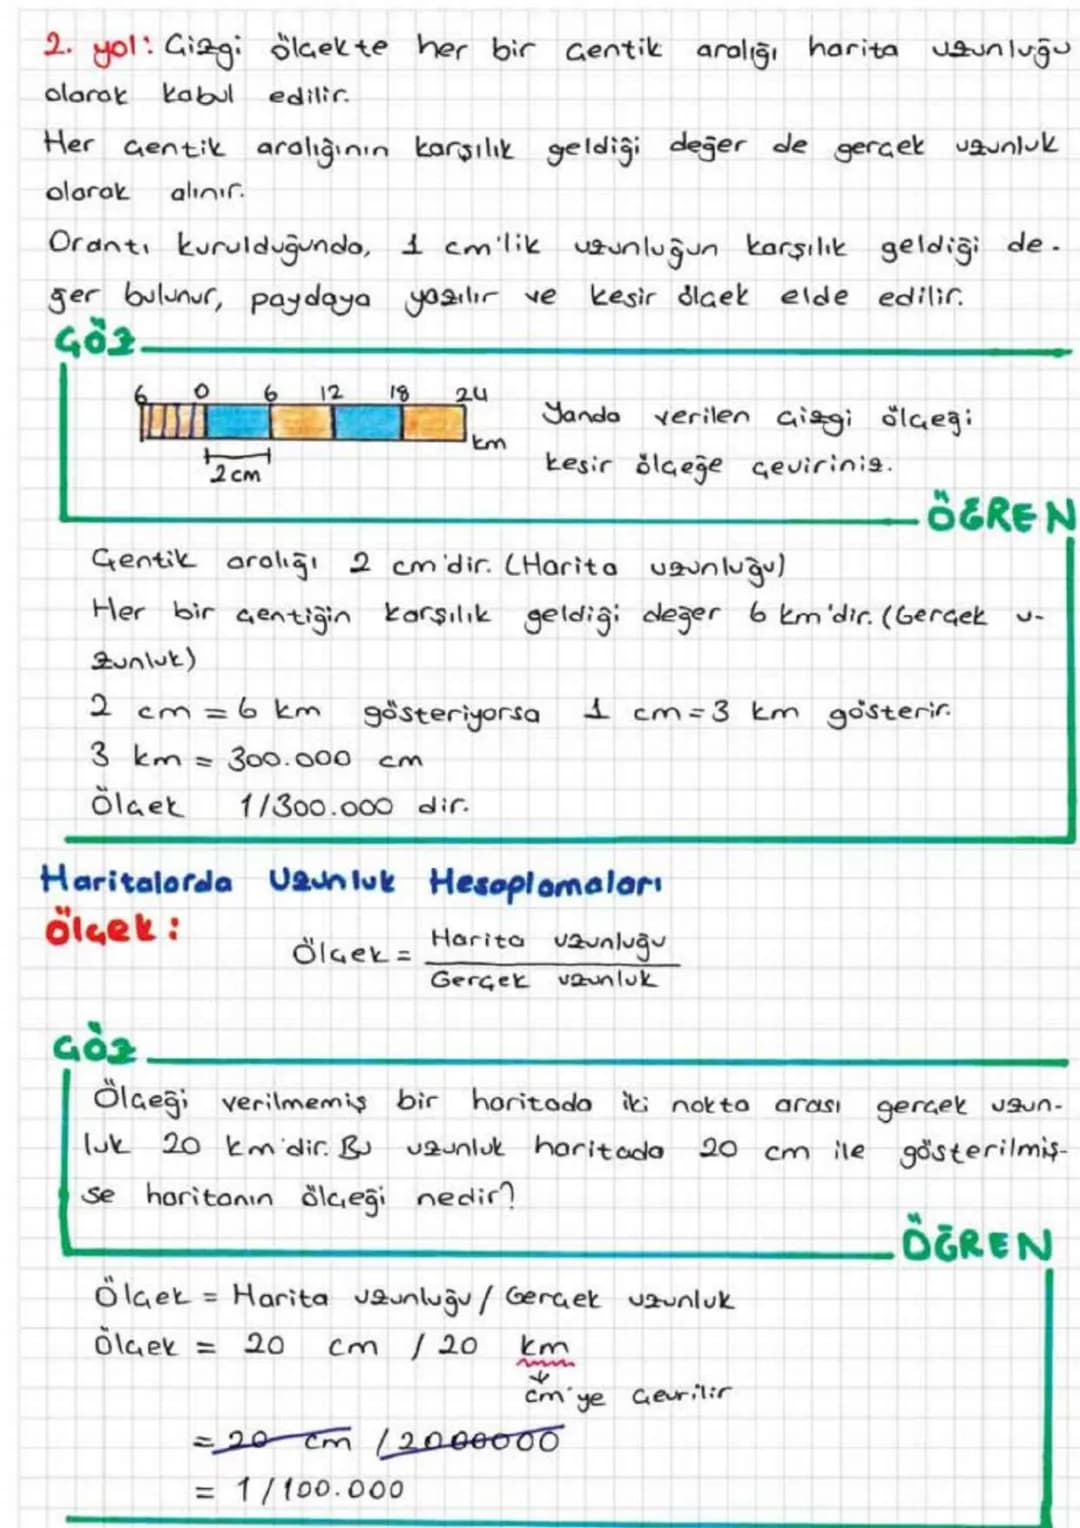 2. yol: Çizgi ölçekte her bir çentik aralığı harita uzunluğu
olarak kabul edilir.
Her çentik aralığının karşılık geldiği değer de gerçek uzunluk
olarak alınır.
Orantı kurulduğunda, 1 cm'lik uzunluğun karşılık geldiği de-
ğer bulunur, paydaya yazılır ve kesir ölçek elde edilir.
ÇÖZ
6 0 6 12 18 24
km
2 cm
Yanda verilen çizgi ölçeği
kesir ölçeğe çeviriniz.
ÖĞREN
Çentik aralığı 2 cm'dir. (Harita uzunluğu)
Her bir çentiğin karşılık geldiği değer 6 km'dir. (Gerçek u-
zunluk)
2 cm = 6 km gösteriyorsa 1 cm = 3 km gösterir.
3 km = 300.000 cm
Ölçek 1/300.000 dir.
Haritalarda Uzunluk Hesaplamaları
Ölçek:
Ölçek = Harita uzunluğu
Gerçek uzunluk
ÇÖZ
Ölçeği verilmemiş bir haritada iki nokta arası gerçek uzun-
luk 20 km'dir. Bu uzunluk haritada 20 cm ile gösterilmiş-
se haritanın ölçeği nedir?
ÖĞREN
Ölçek = Harita uzunluğu / Gerçek uzunluk
Ölçek = 20 cm / 20 km
cm'ye çevrilir
= 20 cm / 2000000
= 1 / 100.000